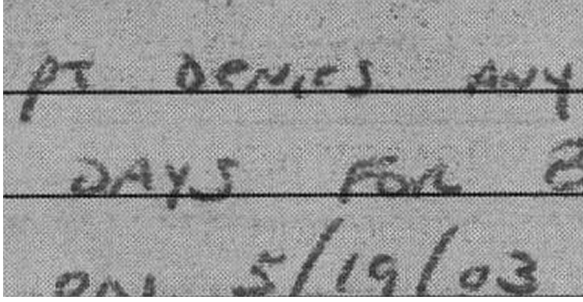 PT DENIES ANY
DAYS FOR
ON 5/19/03